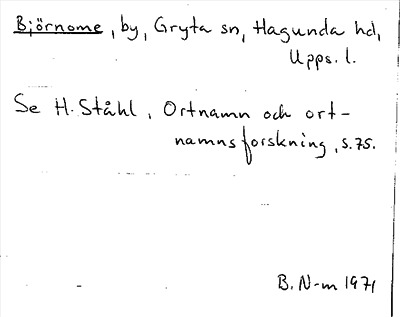 Björnome, by, Gryta sn, Hagunda hd,
Upps. l.
Se H. Ståhl, Ortnamn och ort-
namnsforskning, s. 75.
B. N-m 1971